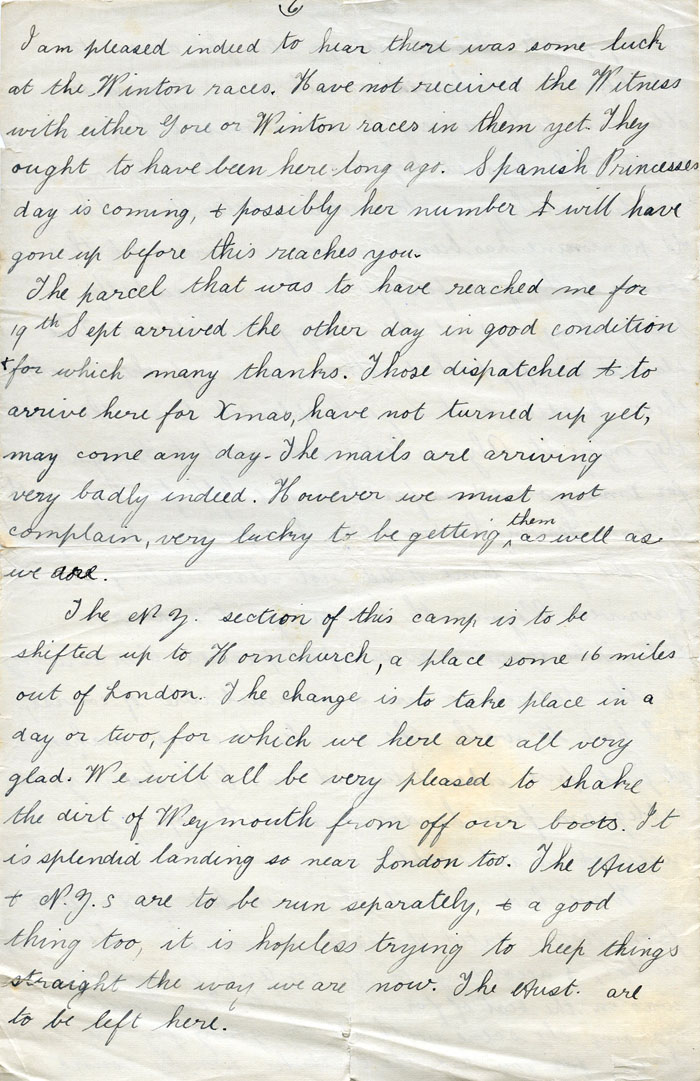 6
I am pleased indeed to hear there was some luck
at the Winton races. Have not received the Witness
with either Gore or Winton races in them yet. They
ought to have been here long ago. Spanish Princesses
day is coming, & possibly her number will have
gone up before this reaches you.
The parcel that was to have reached me for
19th Sept arrived the other day in good condition
& for which many thanks. Those dispatched & to
arrive here for Xmas, have not turned up yet,
may come any day. The mails are arriving
very badly indeed. However we must not
complain, very lucky to be getting them as well as
we are.
The N.Z. section of this camp is to be
shifted up to Hornchurch, a place some 16 miles
out of London. The change is to take place in a
day or two, for which we here are all very
glad. We will all be very pleased to shake
the dirt of Weymouth from off our boots. It
is splendid landing so near London too. The Aust
& N.Z.s are to be run separately, & a good
thing too, it is hopeless trying to keep things
straight the way we are now. The Aust. are
to be left here.